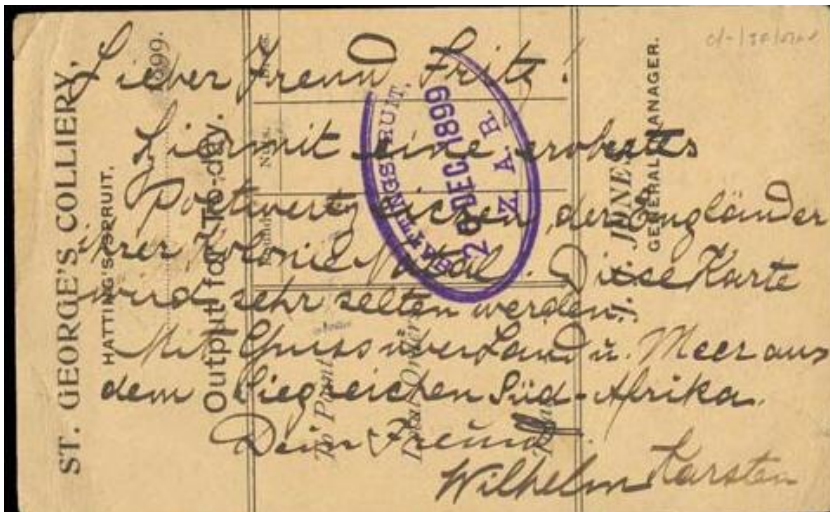 Lieber Freund Fritz!
Hiermit eine erobertes
Postwertzeichen der Engländer
ihrer Kolonie Natal. Diese Karte
wird sehr selten werden.
Mit Gruss über Land u. Meer aus
dem Siegreichen Süd-Afrika.
Dein Freund
Wilhelm Karsten
ST. GEORGE'S COLLIERY,
HATTING'S SPRUIT.
1899.
Output for To-day.
Nuts.
To Point
Total Orders
J. JONES
GENERAL MANAGER.
HATTINGSPRUIT.
26 DEC 1899
Z. A. R.